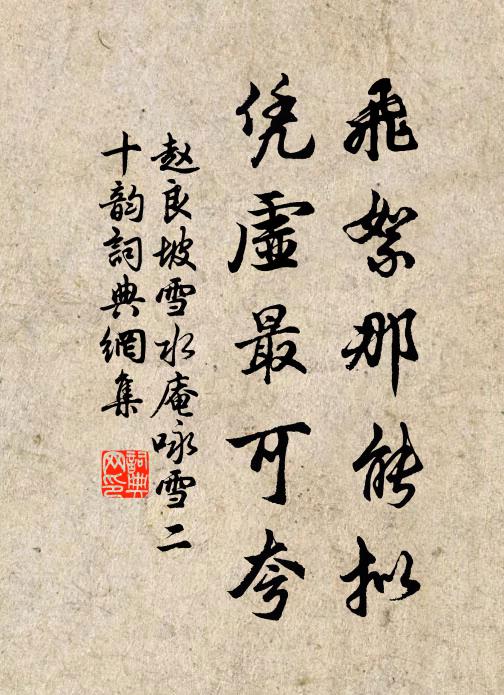 飛絮那能拟
凭虛最可夸
赵良坡雪水庵咏雪二
十韵詞典網集
詞典网印